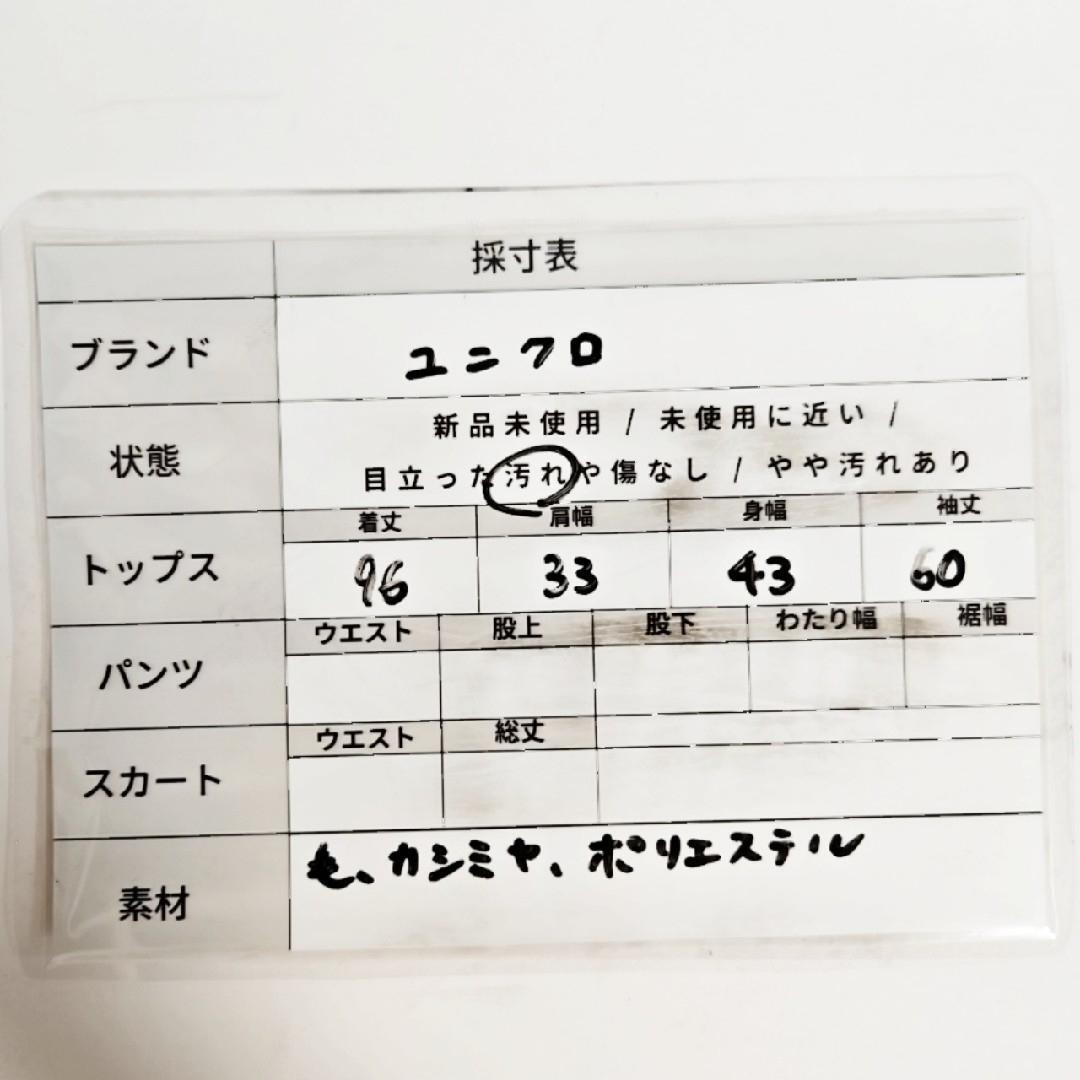 採寸表
ブランド ユニクロ
状態 新品未使用 / 未使用に近い /
目立った汚れや傷なし / やや汚れあり
トップス 着丈 肩幅 身幅 袖丈
96 33 43 60
パンツ ウエスト 股上 股下 わたり幅 裾幅
スカート ウエスト 総丈
素材 毛、カシミヤ、ポリエステル